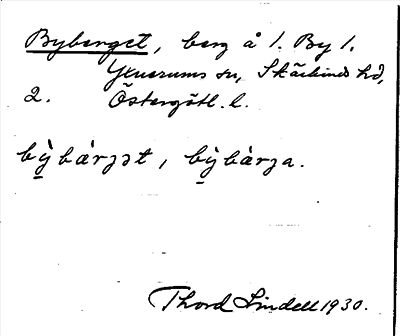 Byberget, berg å 1. By 1.
Yxnerums sn, Skärkinds hd,
2. Östergötl. l.
bỳbàrjət, bỳbàrja.
Thord Lindell 1930.